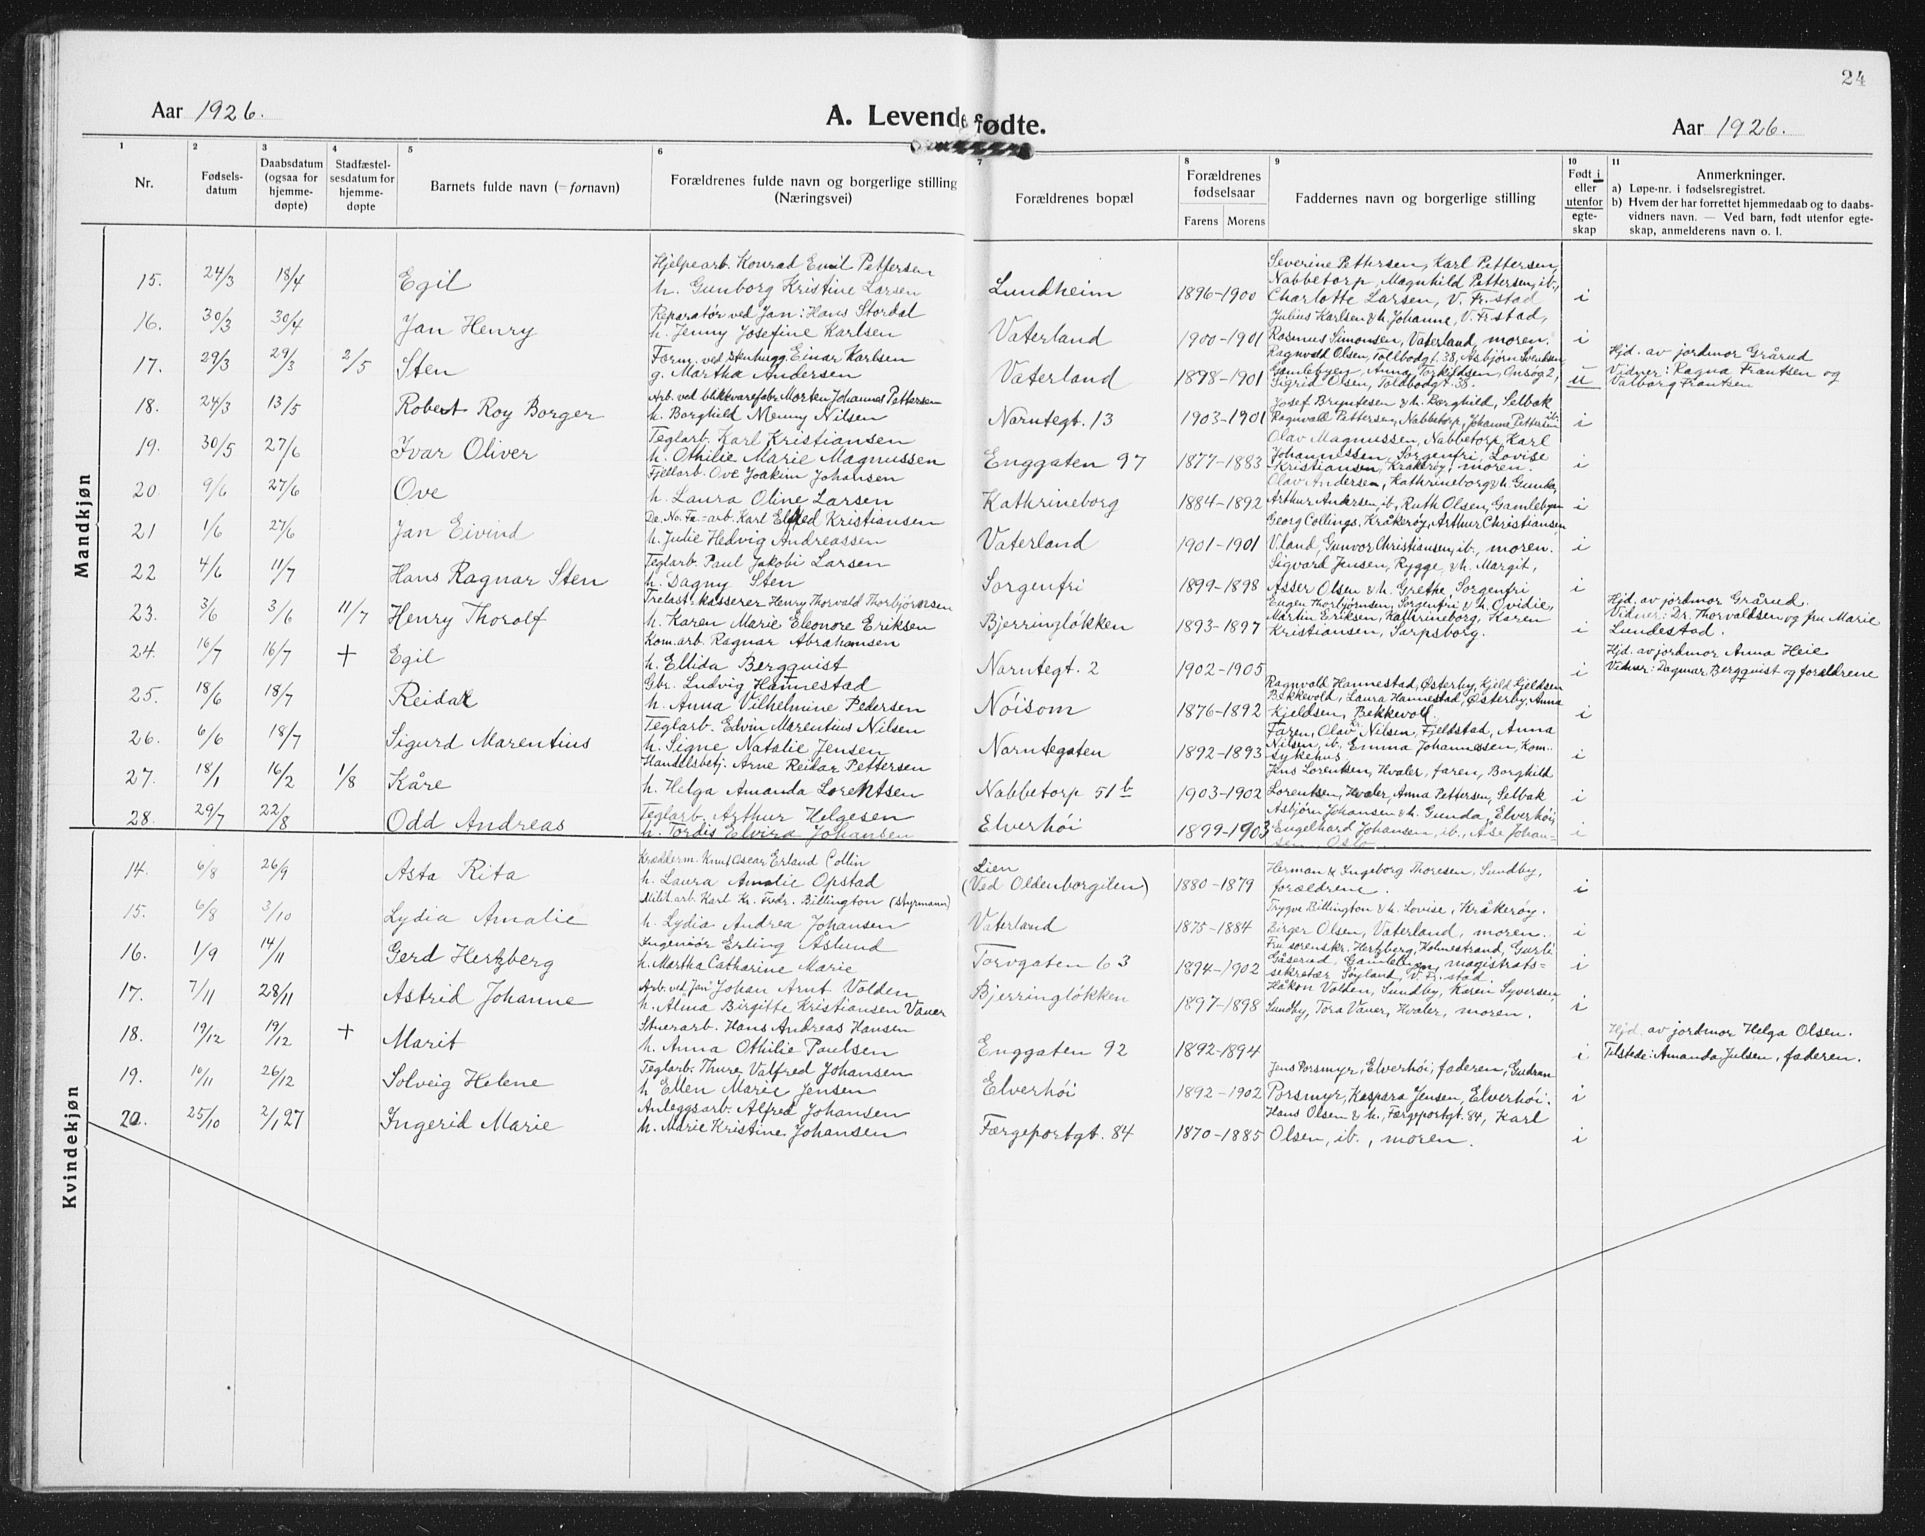 24
Aar 1926.
A. Levendefødte.
Aar 1926.
1 Nr.
2 Fødselsdatum
3 Daabsdatum (ogsaa for hjemmedøpte)
4 Stadfæstelsesdatum for hjemmedøpte
5 Barnets fulde navn (= fornavn)
6 Forældrenes fulde navn og borgerlige stilling (Næringsvei)
7 Forældrenes bopæl
8 Forældrenes fødselsaar
Farens Morens
9 Faddernes navn og borgerlige stilling
10 Født i eller utenfor egteskap
11 Anmerkninger.
a) Løpe-nr. i fødselsregistret.
b) Hvem der har forrettet hjemmedaab og to daabsvidners navn. — Ved barn, født utenfor egteskap, anmelderens navn o. l.
Mandkjøn
15. 24/3 18/4 Egil
Hjelpearb. Konrad Emil Pettersen
h. Gunborg Kristine Larsen
Lundheim 1896-1900
Severine Pettersen, Karl Pettersen,
Nabbetorp, Magnhild Pettersen, ib.,
Charlotte Larsen, V. Fr.stad i
16. 30/3 30/4 Jan Henry
Reparatør ved Jan: Hans Stordal
h. Jenny Josefine Karlsen
Vaterland 1900-1901
Julius Karlsen & h. Johanne, V. Fr.stad,
Rasmus Simonsen, Vaterland, moren. i
17. 29/3 29/3 2/5 Sten
Form. ved Einar Karlsen
g. Martha Andersen
Vaterland 1898-1901
Ragnvald Olsen, Tollbodgt. 38, Asbjørn Svendsen
Gamlebyen, Anna Torkildsen, Onsøg. 2,
Sigrid Olsen, Toldbodgt. 38. u
Hjd. av jordmor Grårud
Vidner: Ragna Frantsen og
Valborg Frantsen
18. 24/3 13/5 Robert Roy Borger
Arb. ved blikkvarefabr. Morten Johannes Pettersen
h. Borghild Menny Nilsen
Narntegt. 13 1903-1901
Josef Bryntesen & h. Borghild, Selbak
Ragnvald Pettersen, Nabbetorp, Johanna Pettersen ib. i
19. 30/5 27/6 Ivar Oliver
Teglarb. Karl Kristiansen
h. Othilie Marie Magnussen
Enggaten 97 1877-1883
Olav Magnussen, Nabbetorp, Karl
Johannessen, Sorgenfri, Lovise
Kristiansen, Kråkerøy, moren. i
20 9/6 27/6 Ove
Fjellarb. Ove Joakim Johansen
h. Laura Oline Larsen
Kathrineborg 1884-1892
Olav Andersen, Kathrineborg & h. Gunda,
Arthur Andersen ib, Ruth Olsen, Gamlebyen i
21 1/6 27/6 Jan Eivind
De. No. Fa.=arb. Karl Elfred Kristiansen
h. Julie Hedvig Andreassen
Vaterland 1901-1901
Georg Collings, Kråkerøy, Arthur Christiansen,
V.land, Gunvor Christiansen, ib., moren. i
22 4/6 11/7 Hans Ragnar Sten
Teglarb. Paul Jakobi Larsen
h. Dagny Sten
Sorgenfri 1899-1898
Sigvard Jensen, Rygge, & h. Margit,
Asser Olsen & h. Grethe, Sorgenfri i
23. 3/6 3/6 11/7 Henry Thorolf
Trelast-kasserer Henry Thorvald Thorbjørnsen
h. Karen Marie Eleonore Eriksen
Bjerringløkken 1893-1897
Eugen Thorbjørnsen, Sorgenfri & h. Ovidie,
Martin Eriksen, Kathrineborg, Karen
Kristiansen, Sarpsborg. i
Hjd. av jordmor Grårud.
Vidner: Dr. Thorvaldsen og fru Marie
Lundestad.
24. 16/7 16/7 + Egil
Kom. arb. Ragnar Abrahamsen
h. Ellida Bergquist
Narntegt. 2 1902-1905 i
Hjd. av jordmor Anna Heie
Vidner: Dagmar Bergquist og foreldrene
25. 18/6 18/7 Reidar
Gbr. Ludvig Hannestad
h. Anna Vilhelmine Pedersen
Nøisom 1876-1892
Ragnvald Hannestad, Østerby, Kjeld Kjeldsen
Bekkevold, Laura Hannestad, Østerby, Anna
Kjeldsen, Bekkevold. i
26. 6/6 18/7 Sigurd Marentius
Teglarb. Edvin Marentius Nilsen
h. Signe Natalie Jensen
Narntegaten 1892-1893
Faren, Olav Nilsen, Fjeldstad, Anna
Nilsen, ib. Emma Johannessen, Kom.
sykehus. i
27. 18/1 16/2 1/8 Kåre
Handelsbetj. Arne Reidar Pettersen
h. Helga Amanda Lorentsen
Nabbetorp 51b 1903-1902
Jens Lorentsen, Hvaler, faren, Borghild
Lorentsen, Hvaler, Anna Pettersen, Selbak i
28. 29/7 22/8 Odd Andreas
Teglarb. Arthur Helgesen
h. Tordis Elvira Johansen
Elverhøi 1899-1903
Asbjørn Johansen & h. Gunda, Elverhøi,
Engelhard Johansen, ib., Åse Johan-
sen Oslo i
Kvindekjøn
14. 6/8 26/9 Asta Rita
Kreddern. Knut Oscar Erland Collin
h. Laura Amalie Opstad
Lien
(Ved Oldenborgilen) 1880-1879
Herman & Ingeborg Thoresen, Sundby,
forældrene. i
15. 6/8 3/10 Lydia Amalie
Milit. arb. Karl Kr. Fredr. Billington (styrmann)
h. Lydia Andrea Johansen
Vaterland 1875-1884
Trygve Billington & h. Lovise, Kråkerøy.
Birger Olsen, Vaterland, moren. i
16. 1/9 14/11 Gerd Hertzberg
Ingeniør Erling Åslund
h. Martha Catharine Marie
Torvgaten 63 1894-1902
Fru sorenskr. Hertzberg, Holmestrand, Gurli
Gåserud, Gamlebyen, magistrats-
sekretær Søyland, V. Fr.stad i
17. 7/11 28/11 Astrid Johanne
Arb. ved "Jan" Johan Arnt Volden
h. Alma Birgitte Kristiansen Vauer
Bjerringløkken 1897-1898
Håkon Volden, Sundby, Karen Syversen,
Sundby, Tora Vauer, Hvaler, moren. i
18. 19/12 19/12 + Marit
Stuerarb. Hans Andreas Hansen
h. Anna Othilie Paulsen
Enggaten 92 1892-1894 i
Hjd. av jordmor Helga Olsen.
Tilstede: Amanda Julsen, faderen.
19. 10/11 26/12 Solveig Helene
Teglarb. Thure Valfred Johansen
h Ellen Marie Jensen
Elverhøi 1892-1902
Jens Porsmyr, Elverhøi, faderen, Gudrun
Porsmyr, Kaspara Jensen, Elverhøi. i
20. 25/10 2/1 27 Ingerid Marie
Anleggsarb. Alfred Johansen
h. Marie Kristine Johansen
Færgeportgt. 84 1870-1885
Hans Olsen & h, Færgeportgt. 84, Karl
Olsen, ib., moren. i